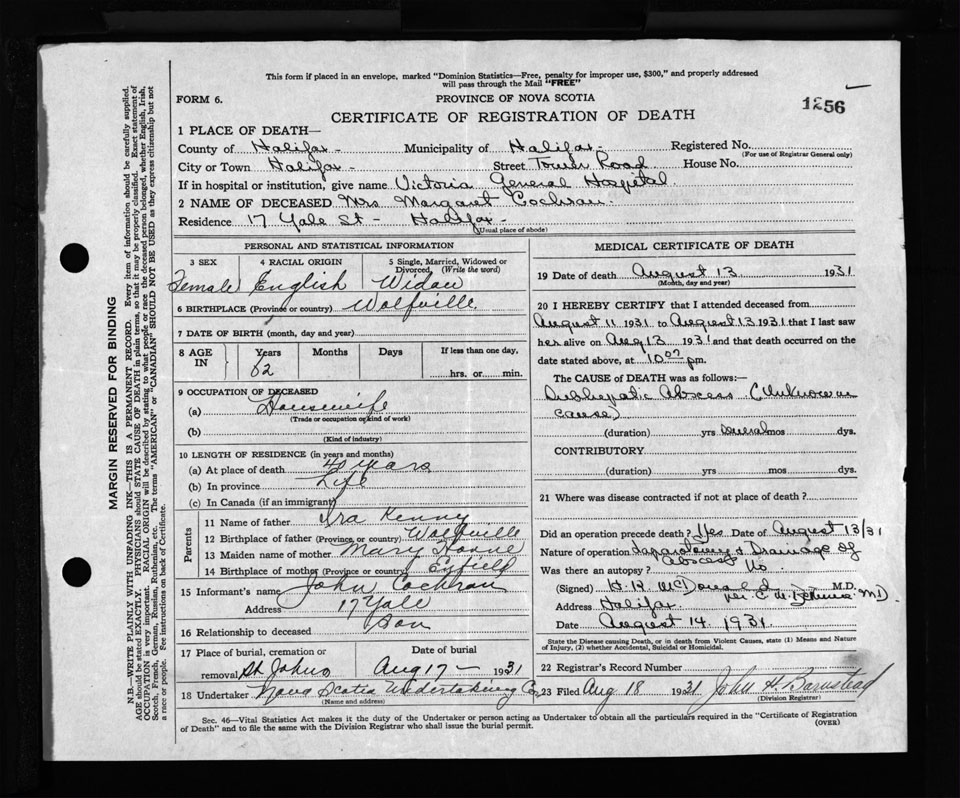 This form if placed in an envelope, marked "Dominion Statistics—Free, penalty for improper use, $300," and properly addressed
will pass through the Mail "FREE"
FORM 6.
PROVINCE OF NOVA SCOTIA
1256
CERTIFICATE OF REGISTRATION OF DEATH
1 PLACE OF DEATH—
County of Halifax - Municipality of Halifax - Registered No.
(For use of Registrar General only)
City or Town Halifax - Street Tower Road House No.
If in hospital or institution, give name Victoria General Hospital
2 NAME OF DECEASED Mrs Margaret Cochran.
Residence 17 Yale St - Halifax -
(Usual place of abode)
PERSONAL AND STATISTICAL INFORMATION
3 SEX 4 RACIAL ORIGIN 5 Single, Married, Widowed or
Divorced, (Write the word)
Female English Widow
6 BIRTHPLACE (Province or country) Wolfville
7 DATE OF BIRTH (month, day and year)
8 AGE IN Years Months Days If less than one day,
62 hrs. or min.
9 OCCUPATION OF DECEASED
(a) Housewife
(Trade or occupation or kind of work)
(b)
(Kind of industry)
10 LENGTH OF RESIDENCE (in years and months)
(a) At place of death 40 years
(b) In province Life
(c) In Canada (if an immigrant)
Parents
11 Name of father Ira Kenny
12 Birthplace of father (Province or country) Wolfville
13 Maiden name of mother Mary
14 Birthplace of mother (Province or country) Enfield
15 Informant's name John Cochran
Address 17 Yale
16 Relationship to deceased Son
17 Place of burial, cremation or
removal St Johns
Date of burial
Aug 17 - 1931
18 Undertaker Nova Scotia Undertaking Co
(Name and address)
MEDICAL CERTIFICATE OF DEATH
19 Date of death August 13 1931
(Month, day and year)
20 I HEREBY CERTIFY that I attended deceased from
August 11 1931 to August 13 1931 that I last saw
her alive on Aug 13 1931 and that death occurred on the
date stated above, at 10 pm.
The CAUSE of DEATH was as follows:—
Subhepatic Abscess (Unknown
cause)
(duration) yrs several mos dys.
CONTRIBUTORY
(duration) yrs mos dys.
21 Where was disease contracted if not at place of death?
Did an operation precede death? Yes Date of August 13/31
Nature of operation Laparotomy & Drainage of
abscess
Was there an autopsy? No
(Signed) H. R. McDonald M.D.
per C. M.D.
Address Halifax
Date August 14 1931
State the Disease causing Death, or in death from Violent Causes, state (1) Means and Nature
of Injury, (2) whether Accidental, Suicidal or Homicidal.
22 Registrar's Record Number
23 Filed Aug 18 1931 John H Barnstead
(Division Registrar)
Sec. 46—Vital Statistics Act makes it the duty of the Undertaker or person acting as Undertaker to obtain all the particulars required in the "Certificate of Registration
of Death" and to file the same with the Division Registrar who shall issue the burial permit.
(OVER)
MARGIN RESERVED FOR BINDING
N.B.—WRITE PLAINLY WITH UNFADING INK—THIS IS A PERMANENT RECORD. Every item of information should be carefully supplied.
AGE should be stated EXACTLY. PHYSICIANS should STATE CAUSE OF DEATH in plain terms, so that it may be properly classified. Exact statement of
OCCUPATION is very important. RACIAL ORIGIN will be described by stating to what people or race the deceased person belonged, whether English, Irish,
Scotch, French, German, Russian, Ruthenian, etc. The terms "AMERICAN" or "CANADIAN" SHOULD NOT BE USED as they express citizenship but not
a race or people. See instructions on back of Certificate.